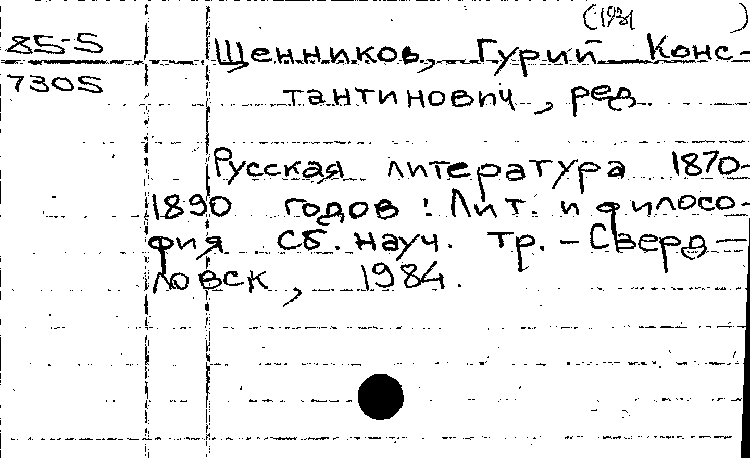 (1931 )
85-5 Щенников, Гурий Конс-
7305 тантинович, ред.
Русская литература 1870-
1890 годов : Лит. и филосо-
фия Сб. науч. тр. - Сверд-
ловск, 1984.